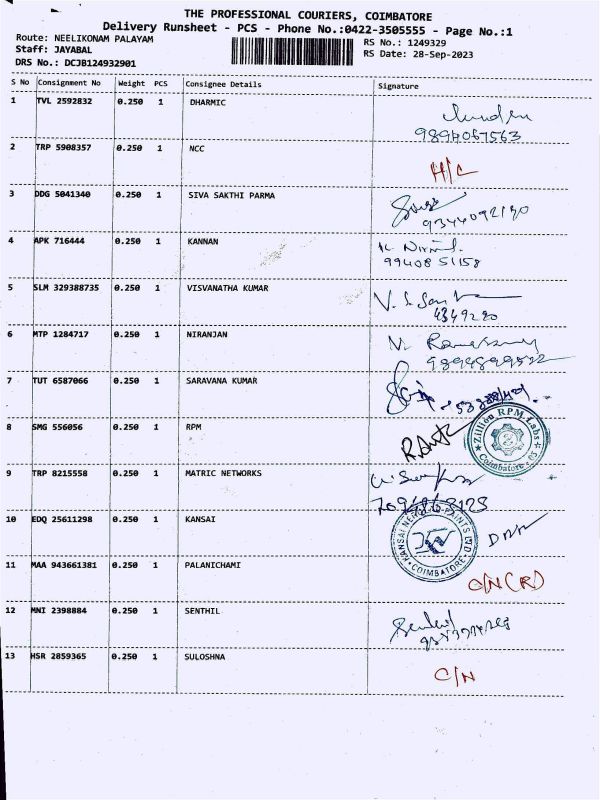 THE PROFESSIONAL COURIERS, COIMBATORE
Delivery Runsheet - PCS - Phone No.:0422-3505555 - Page No.:1
Route: NEELIKONAM PALAYAM
RS No.: 1249329
Staff: JAYABAL
RS Date: 28-Sep-2023
DRS No.: DCJB124932901
S No Consignment No Weight PCS Consignee Details Signature
1 TVL 2592832 0.250 1 DHARMIC
9894067563
2 TRP 5908357 0.250 1 NCC H/C
3 DDG 5041340 0.250 1 SIVA SAKTHI PARMA
9344092190
4 APK 716444 0.250 1 KANNAN
9940851158
5 SLM 329388735 0.250 1 VISVANATHA KUMAR
4349290
6 MTP 1284717 0.250 1 NIRANJAN
7 TUT 6587066 0.250 1 SARAVANA KUMAR
8 SMG 556056 0.250 1 RPM
Zillion RPM Labs
Coimbatore - 05
9 TRP 8215558 0.250 1 MATRIC NETWORKS
10 EDQ 25611298 0.250 1 KANSAI
KANSAI NEROLAC PAINTS LTD.
COIMBATORE
11 MAA 943661381 0.250 1 PALANICHAMI C/N (R)
12 MNI 2398884 0.250 1 SENTHIL
13 HSR 2859365 0.250 1 SULOSHNA C/N